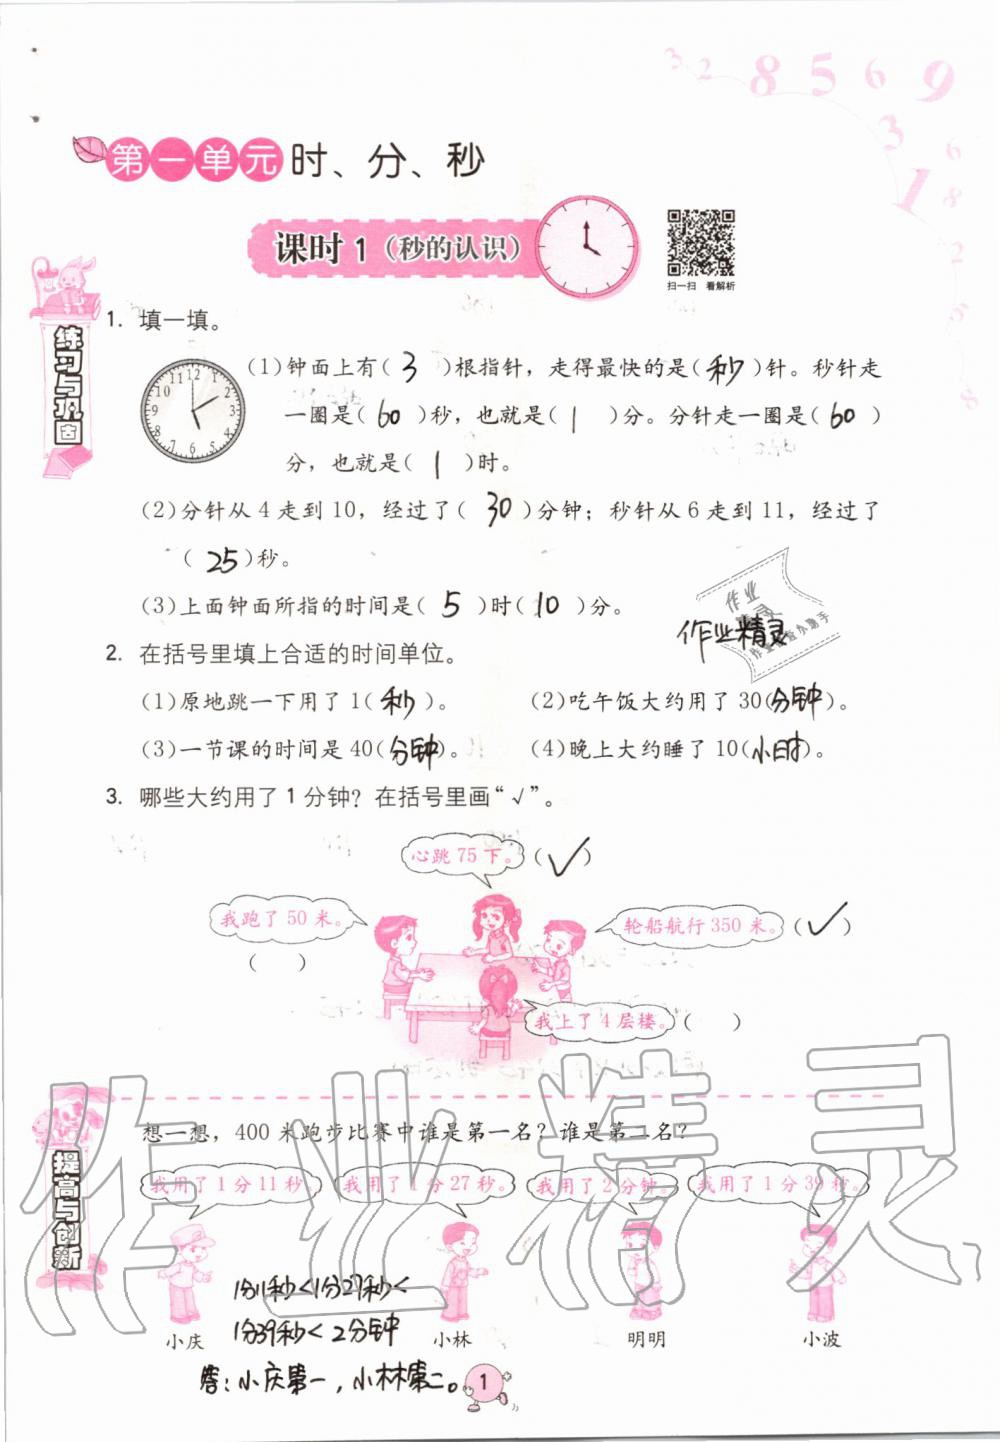 3 2 8 5 6 9
3 6
1 8
2
5
8
第一单元 时、分、秒
课时 1（秒的认识）
扫一扫 看解析
练习与巩固
1. 填一填。
(1)钟面上有( 3 )根指针，走得最快的是(秒)针。秒针走
一圈是( 60 )秒，也就是( 1 )分。分针走一圈是( 60 )
分，也就是( 1 )时。
(2)分针从 4 走到 10，经过了( 30 )分钟；秒针从 6 走到 11，经过了
( 25 )秒。
(3)上面钟面所指的时间是( 5 )时( 10 )分。
作业
精灵
作业检查小助手
作业精灵
2. 在括号里填上合适的时间单位。
(1)原地跳一下用了 1(秒)。 (2)吃午饭大约用了 30(分钟)。
(3)一节课的时间是 40(分钟)。 (4)晚上大约睡了 10(小时)。
3. 哪些大约用了 1 分钟？在括号里画“√”。
心跳 75 下。(√)
我跑了 50 米。
( )
轮船航行 350 米。(√)
我上了 4 层楼。( )
作业精灵
提高与创新
想一想，400 米跑步比赛中谁是第一名？谁是第二名？
我用了 1 分 11 秒。 我用了 1 分 27 秒。 我用了 2 分钟。 我用了 1 分 39 秒。
1分11秒<1分27秒<
1分39秒<2分钟
小庆 小林 明明 小波
答：小庆第一，小林第二。
1